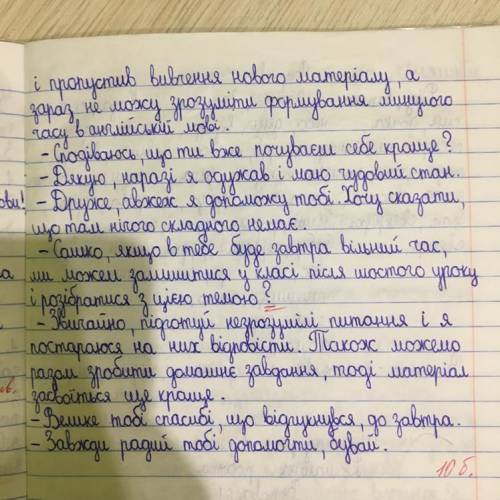 і пропустив вивчення нового матеріалу, а
зараз не можу зрозуміти формування минулого
часу в англійській мові.
- Сподіваюсь, що ти вже почуваєш себе краще?
- Дякую, наразі я одужав і маю чудовий стан.
- Друже, авжеж я допоможу тобі. Хочу сказати,
що там нічого складного немає.
- Сашко, якщо в тебе буде завтра вільний час,
ми можем залишитися у класі після шостого уроку
і розібратися з цією темою?
- Звичайно, підготуй незрозумілі питання і я
постараюся на них відповісти. Також можемо
разом зробити домашнє завдання, тоді матеріал
засвоїться ще краще.
- Велике тобі спасибі, що відгукнувся, до завтра.
- Завжди радий тобі допомогти, бувай.
10 б.